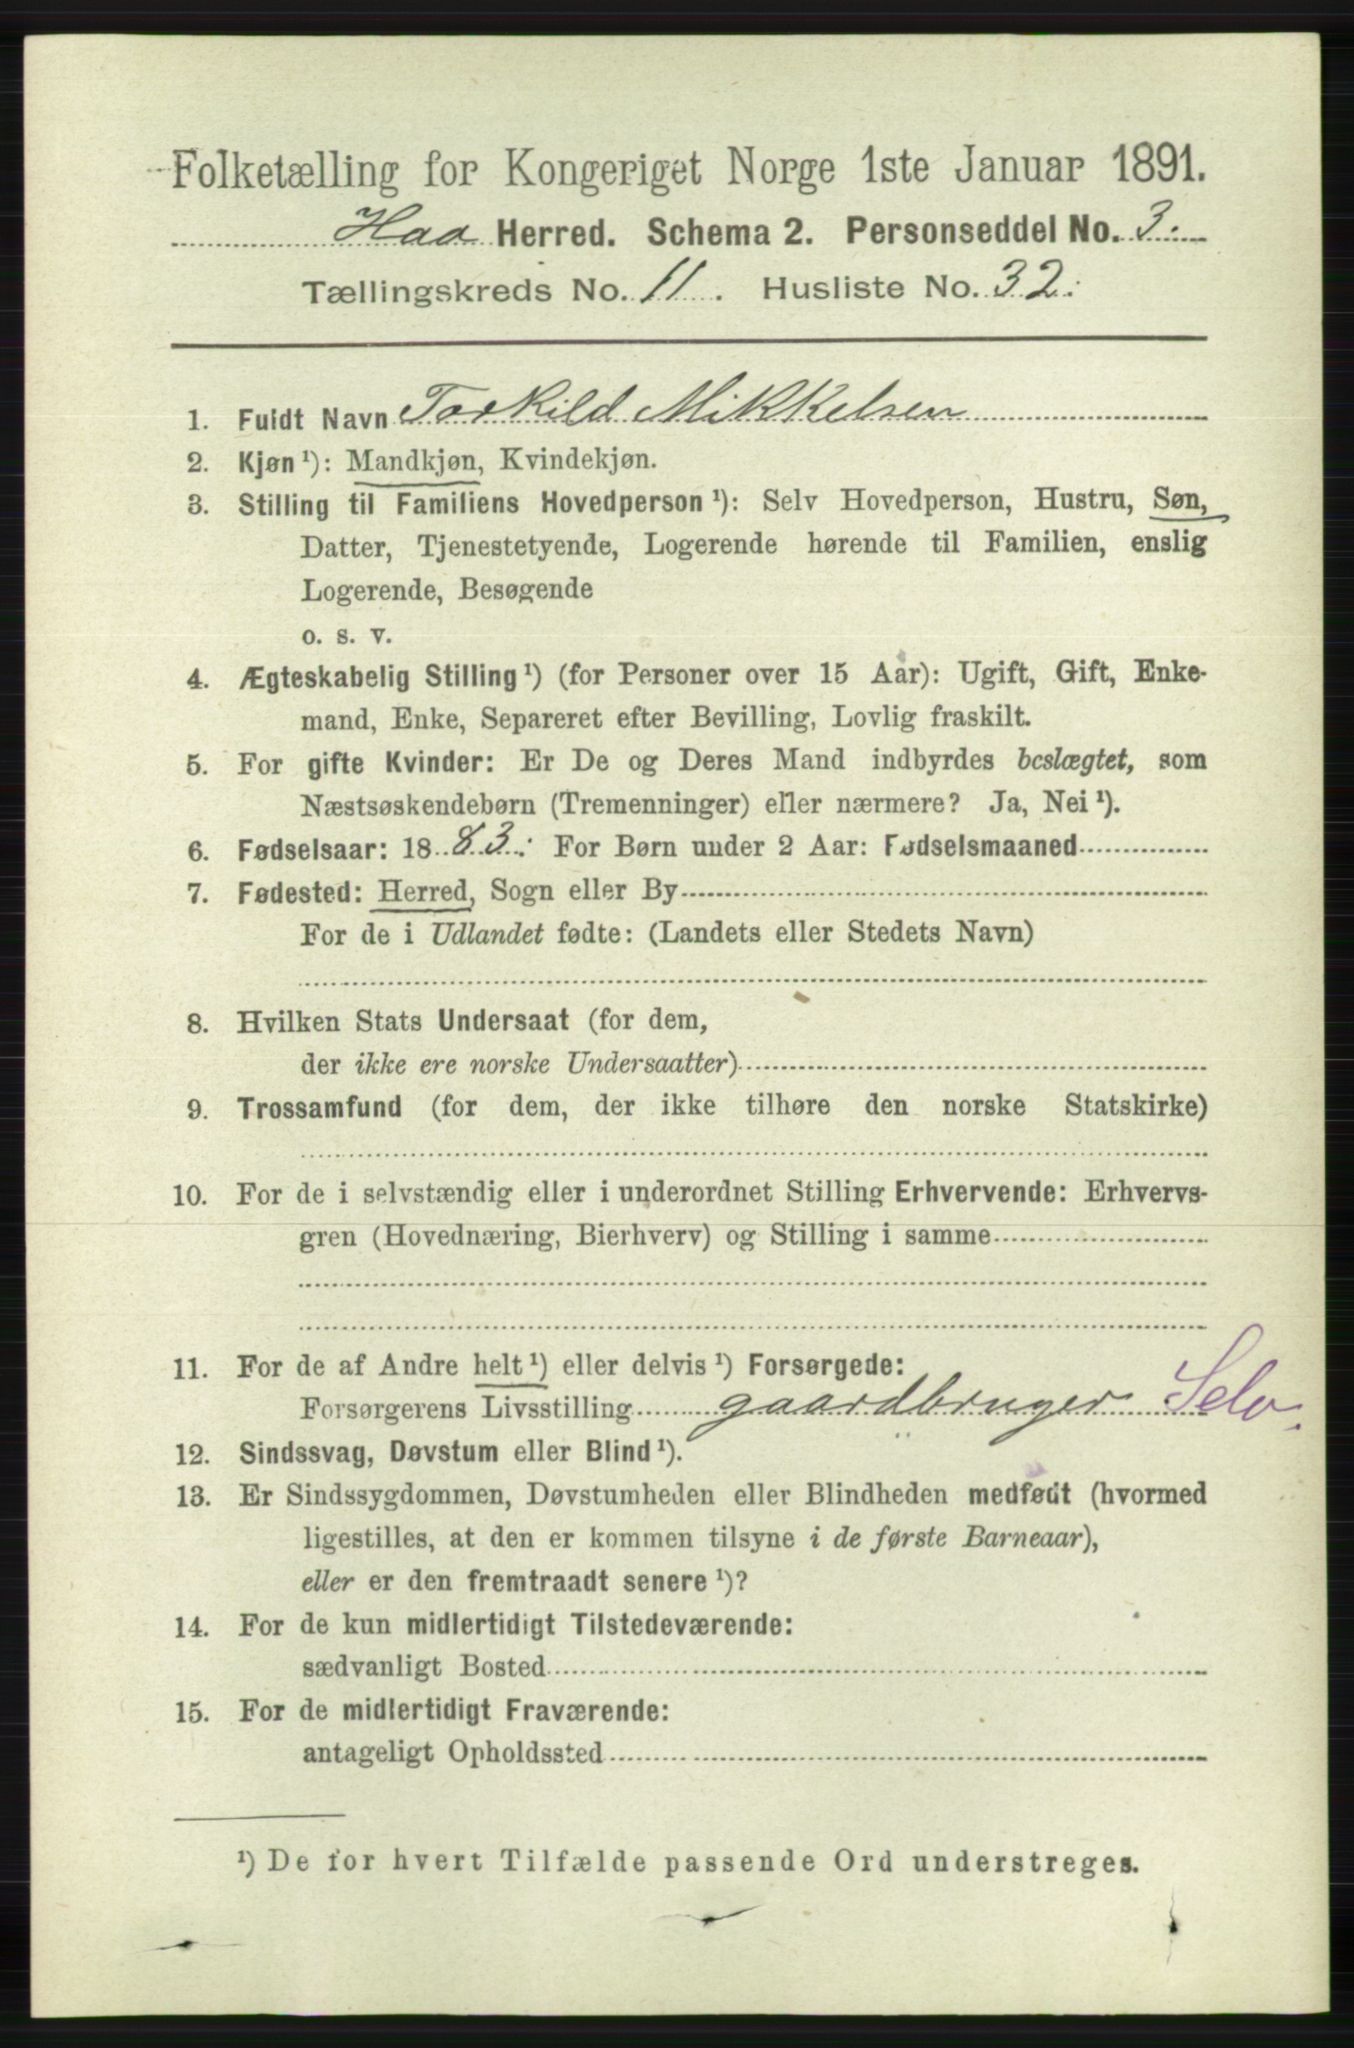 Folketælling for Kongeriget Norge 1ste Januar 1891.
Haa Herred. Schema 2. Personseddel No. 3.
Tællingskreds No. 11. Husliste No. 32.
1. Fuldt Navn Torkild Mikkelsen
2. Kjøn ¹): Mandkjøn, Kvindekjøn.
3. Stilling til Familiens Hovedperson ¹): Selv Hovedperson, Hustru, Søn,
Datter, Tjenestetyende, Logerende hørende til Familien, enslig
Logerende, Besøgende
o. s. v.
4. Ægteskabelig Stilling ¹) (for Personer over 15 Aar): Ugift, Gift, Enke-
mand, Enke, Separeret efter Bevilling, Lovlig fraskilt.
5. For gifte Kvinder: Er De og Deres Mand indbyrdes beslægtet, som
Næstsøskendebørn (Tremenninger) eller nærmere? Ja, Nei ¹).
6. Fødselsaar: 1883. For Børn under 2 Aar: Fødselsmaaned
7. Fødested: Herred, Sogn eller By
For de i Udlandet fødte: (Landets eller Stedets Navn)
8. Hvilken Stats Undersaat (for dem,
der ikke ere norske Undersaatter)
9. Trossamfund (for dem, der ikke tilhøre den norske Statskirke)
10. For de i selvstændig eller i underordnet Stilling Erhvervende: Erhvervs-
gren (Hovednæring, Bierhverv) og Stilling i samme
11. For de af Andre helt ¹) eller delvis ¹) Forsørgede:
Forsørgerens Livsstilling gaardbruger Selv.
12. Sindssvag, Døvstum eller Blind ¹).
13. Er Sindssygdommen, Døvstumheden eller Blindheden medfødt (hvormed
ligestilles, at den er kommen tilsyne i de første Barneaar),
eller er den fremtraadt senere ¹)?
14. For de kun midlertidigt Tilstedeværende:
sædvanligt Bosted
15. For de midlertidigt Fraværende:
antageligt Opholdssted
¹) De for hvert Tilfælde passende Ord understreges.